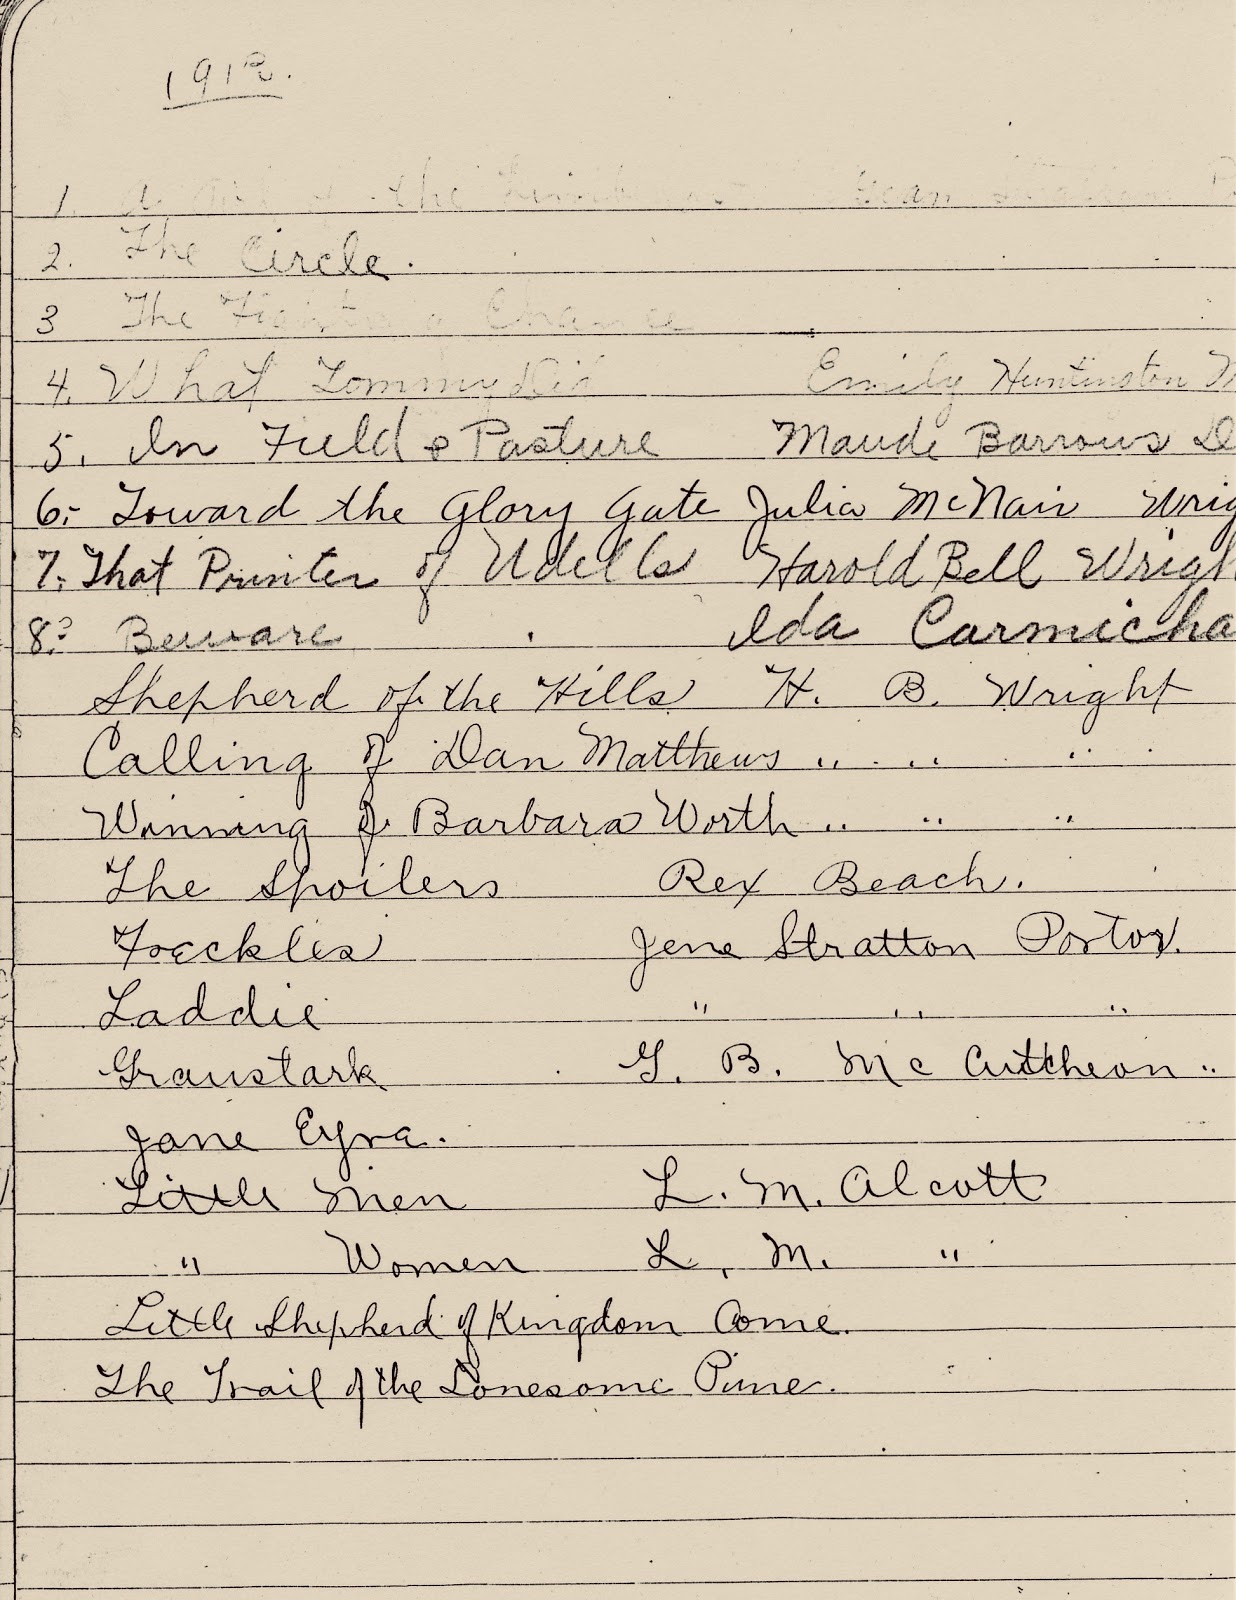 1912.
1. A the
2. The Circle.
3 The Chance
4. What Tommy Did Emily Huntington M
5. In Field & Pasture Maude Barrows D
6. Toward the Glory Gate Julia McNair Wrig
7. That Printer of Udells Harold Bell Wrigh
8. Beware Ida Carmicha
Shepherd of the Hills H. B. Wright
Calling of Dan Matthews " " "
Winning of Barbara Worth " " "
The Spoilers Rex Beach.
Freckles Jene Stratton Porter.
Laddie " " "
Graustark G. B. McCutcheon "
Jane Eyre.
Little Men L. M. Alcott
" Women L. M. "
Little Shepherd of Kingdom Come.
The Trail of the Lonesome Pine.